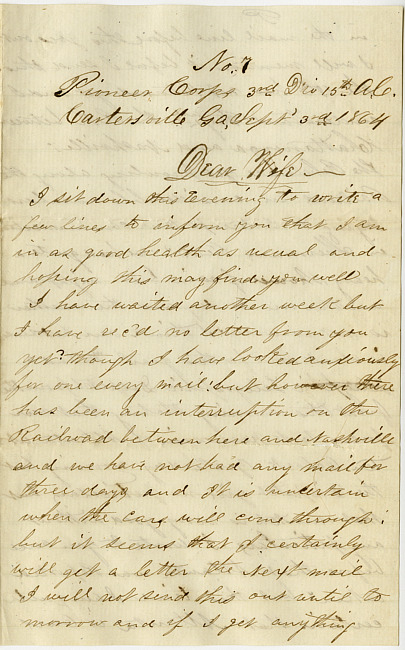 No. 7
Pioneer Corps 3rd Div 15th A.C.
Cartersville Ga, Sept 3rd 1864
Dear Wife
I sit down this Evening to write a
few lines to inform you that I am
in as good health as usual and
hoping this may find you well
I have waited another week but
I have rec'd no letter from you
yet, though I have looked anxiously
for one every mail; but however there
has been an interruption on the
Railroad between here and Nashville
and we have not had any mail for
three days and It is uncertain
when the cars will come through;
but it seems that I certainly
will get a letter the Next mail
I will not send this out until to
morrow and if I get anything